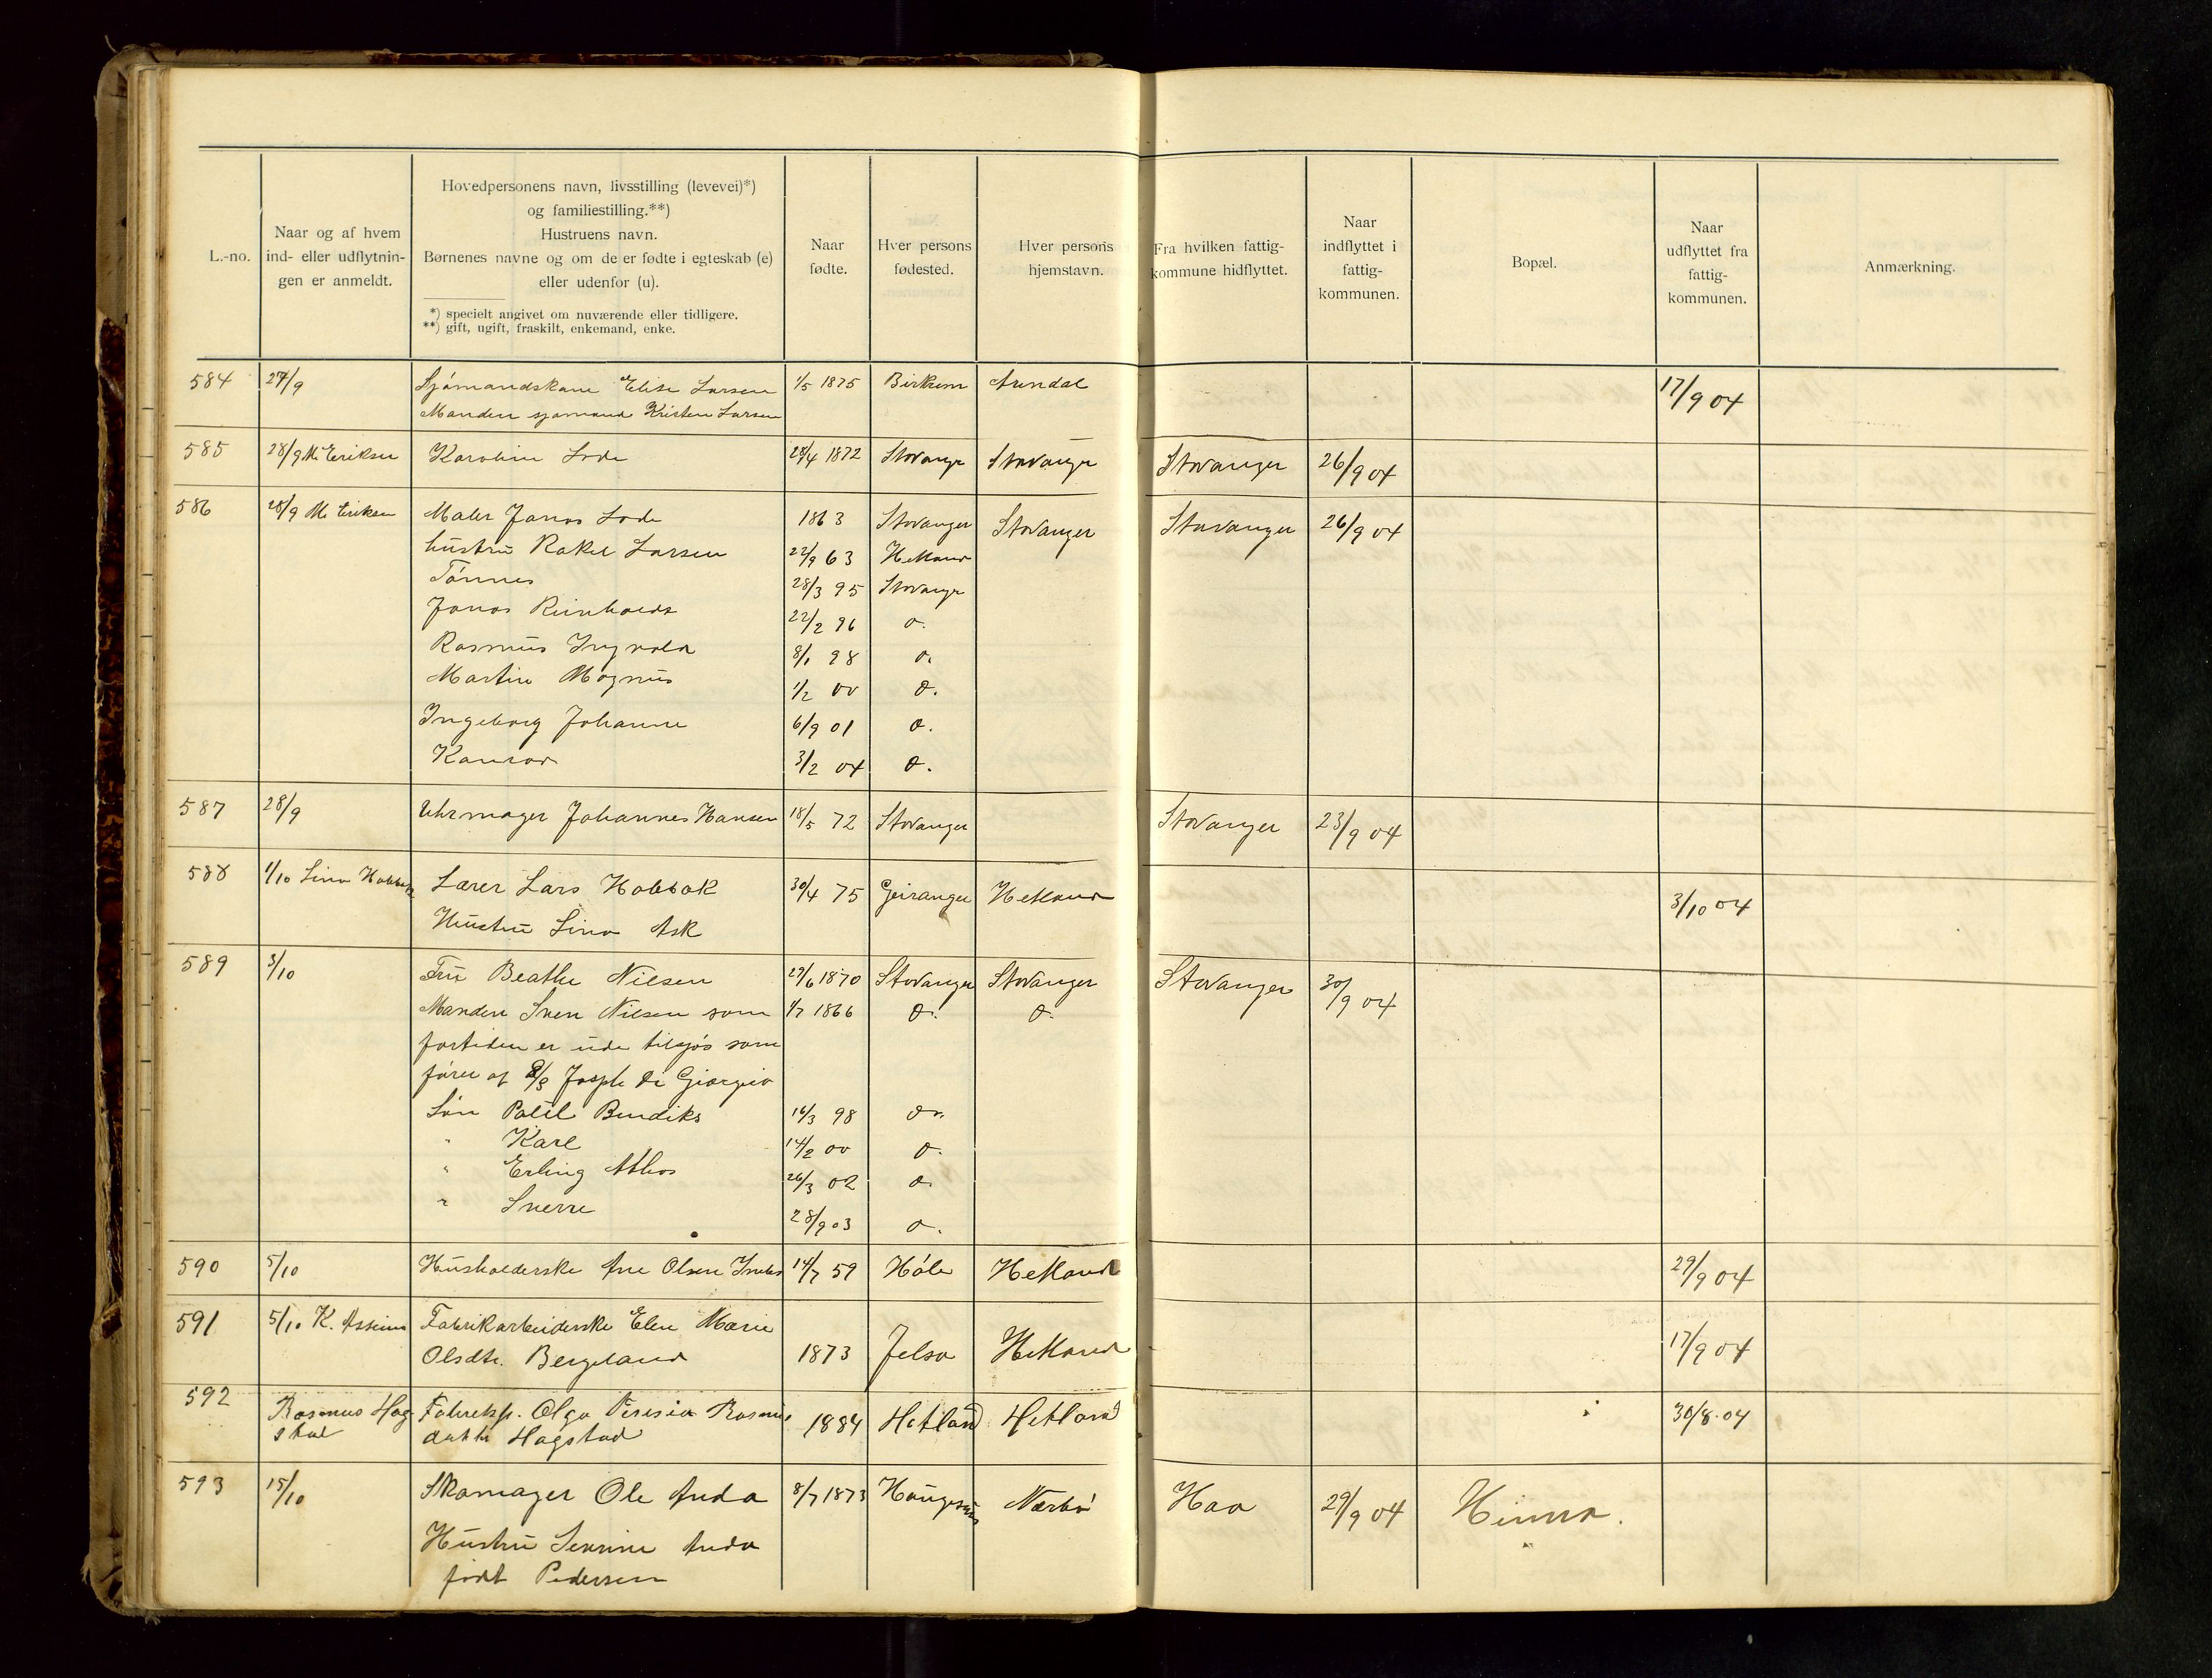 L.-no.
Naar og af hvem
ind- eller udflytnin-
gen er anmeldt.
Hovedpersonens navn, livsstilling (levevei)*)
og familiestilling.**)
Hustruens navn.
Børnenes navne og om de er fødte i egteskab (e)
eller udenfor (u).
*) specielt angivet om nuværende eller tidligere.
**) gift, ugift, fraskilt, enkemand, enke.
Naar
fødte.
Hver persons
fødested.
Hver persons
hjemstavn.
Fra hvilken fattig-
kommune hidflyttet.
Naar
indflyttet i
fattig-
kommunen.
Bopæl.
Naar
udflyttet fra
fattig-
kommunen.
Anmærkning.
584 27/9 Sjømandskone Elise Larsen 1/5 1875 Birkrem Arendal 17/9 04
Manden sjømand Kristen Larsen
585 28/9 M. Eriksen Karoline Lode 28/4 1872 Stavanger Stavanger Stavanger 26/9 04
586 28/9 M. Eriksen Maler Jonas Lode 1863 Stavanger Stavanger Stavanger 26/9 04
hustru Rakel Larsen 22/9 63 Hetland
Tønnes 28/3 95 Stavanger
Jonas Reinholdt 22/2 96 do.
Rasmus Ingvald 8/1 98 do.
Martin Magnus 1/2 00 do.
Ingeborg Johanne 6/9 01 do.
Konrad 3/2 04 do.
587 28/9 Uhrmager Johannes Hansen 18/5 72 Stavanger Stavanger 23/9 04
588 1/10 Lina Holebak Lærer Lars Holebak 30/4 75 Geiranger Hetland 3/10 04
Hustru Lina Ask
589 3/10 Fru Beathe Nilsen 29/6 1870 Stavanger Stavanger Stavanger 30/9 04
Manden Sven Nilsen som 1/7 1866 do. do.
fortiden er ude tilsjøs som
fører af S/S Joseph di Giorgio
Søn Poul Bendiks 16/3 98 do.
" Karl 14/2 00 do.
" Erling Athos 26/3 02 do.
" Sverre 28/9 03 do.
590 5/10 Husholderske Ane Olsen 14/7 59 Høle Hetland 29/9 04
591 5/10 K. Asheim Fabrikarbeiderske Elen Marie
Olsdtr. Bergeland 1873 Jelsa Hetland 17/9 04
592 Rasmus Hog- Fabriksp. Olga Teresia Rasmus 1884 Hetland Hetland 30/8.04
stad datter Hogstad
593 15/10 Skomager Ole Anda 8/7 1873 Haugesund Nærbø Haa 29/9 04 Hinna.
Hustru Severine Anda
født Pedersen